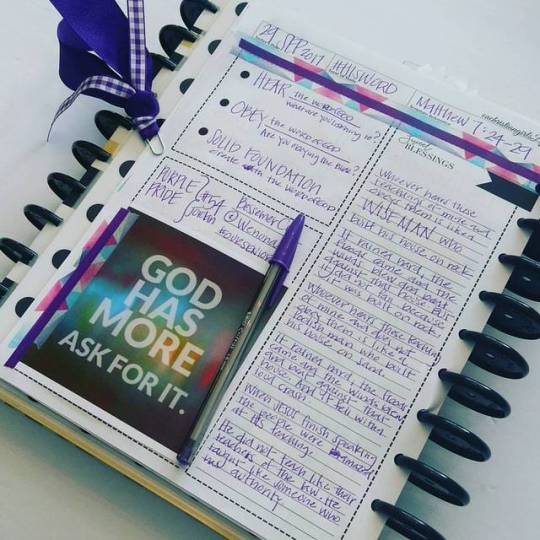 29 SEP 2017
MATTHEW 7:24-29
HEAR the word of God
what are you listening to?
OBEY the word of God
Are you obeying the
SOLID FOUNDATION
create with the word of God
PURPLE
PRIDE
GOD
HAS
MORE
ASK FOR IT.
Sweet
BLESSINGS
Whoever hears these
teachings of mine and
obeys them is like a
WISEMAN who
built his house on rock
It rained hard, the
floods came and the
winds blew and beat
against that house. But
it did not fall because
it was built on rock
Whoever hears these teachings
of mine and does not
obey them is like a
foolish man who built
his house on sand.
It rained hard, the floods
came and the winds blew
and beat against that
house. And it fell with a
loud crash.
When Jesus finish speaking
the people were amazed
at his teaching.
He did not teach like their
teachers of the law. He
taught like someone who
had authority